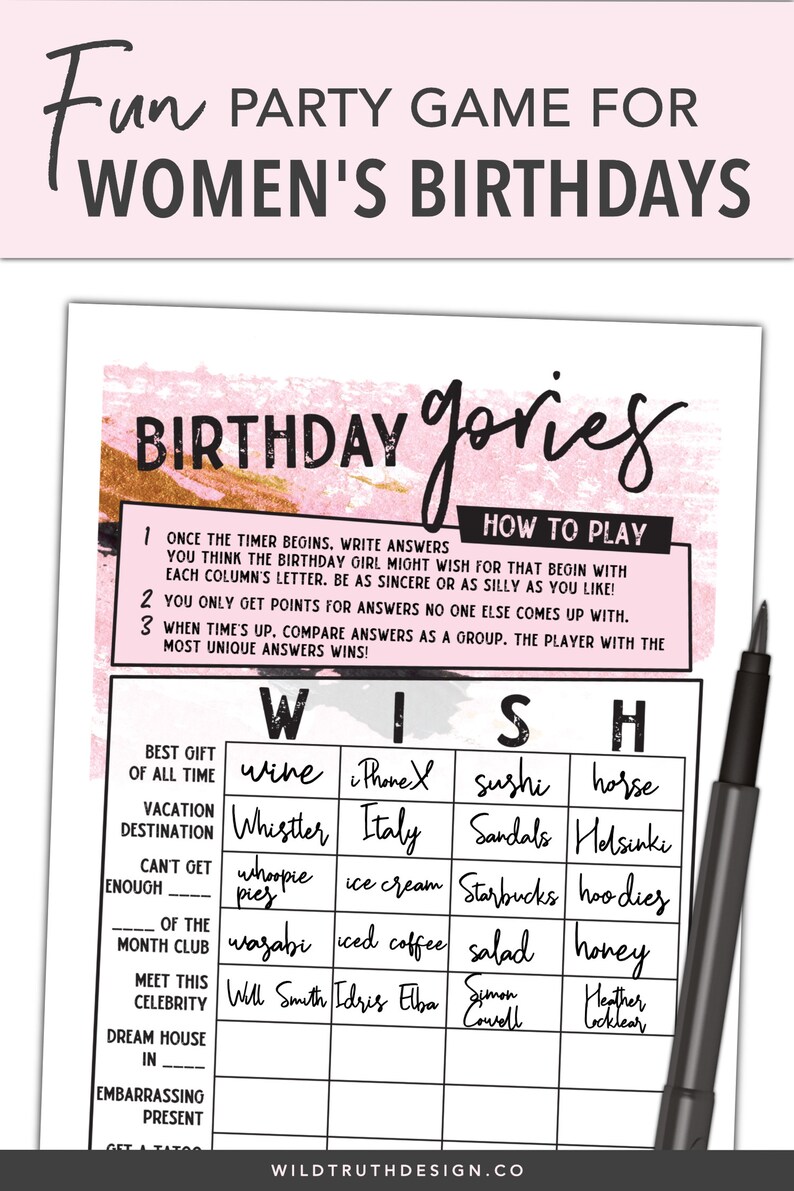 Fun PARTY GAME FOR
WOMEN'S BIRTHDAYS
BIRTHDAY gories
HOW TO PLAY
1 ONCE THE TIMER BEGINS, WRITE ANSWERS
YOU THINK THE BIRTHDAY GIRL MIGHT WISH FOR THAT BEGIN WITH
EACH COLUMN'S LETTER. BE AS SINCERE OR AS SILLY AS YOU LIKE!
2 YOU ONLY GET POINTS FOR ANSWERS NO ONE ELSE COMES UP WITH.
3 WHEN TIME'S UP, COMPARE ANSWERS AS A GROUP. THE PLAYER WITH THE
MOST UNIQUE ANSWERS WINS!
W I S H
BEST GIFT
OF ALL TIME
wine iPhoneX sushi horse
VACATION
DESTINATION
Whistler Italy Sandals Helsinki
CAN'T GET
ENOUGH ____
whoopie
pies
ice cream Starbucks hoodies
____ OF THE
MONTH CLUB
wasabi iced coffee salad honey
MEET THIS
CELEBRITY
Will Smith Idris Elba
Simon
Cowell
Heather
Locklear
DREAM HOUSE
IN ____
EMBARRASSING
PRESENT
GET A TATOO
WILDTRUTHDESIGN.CO